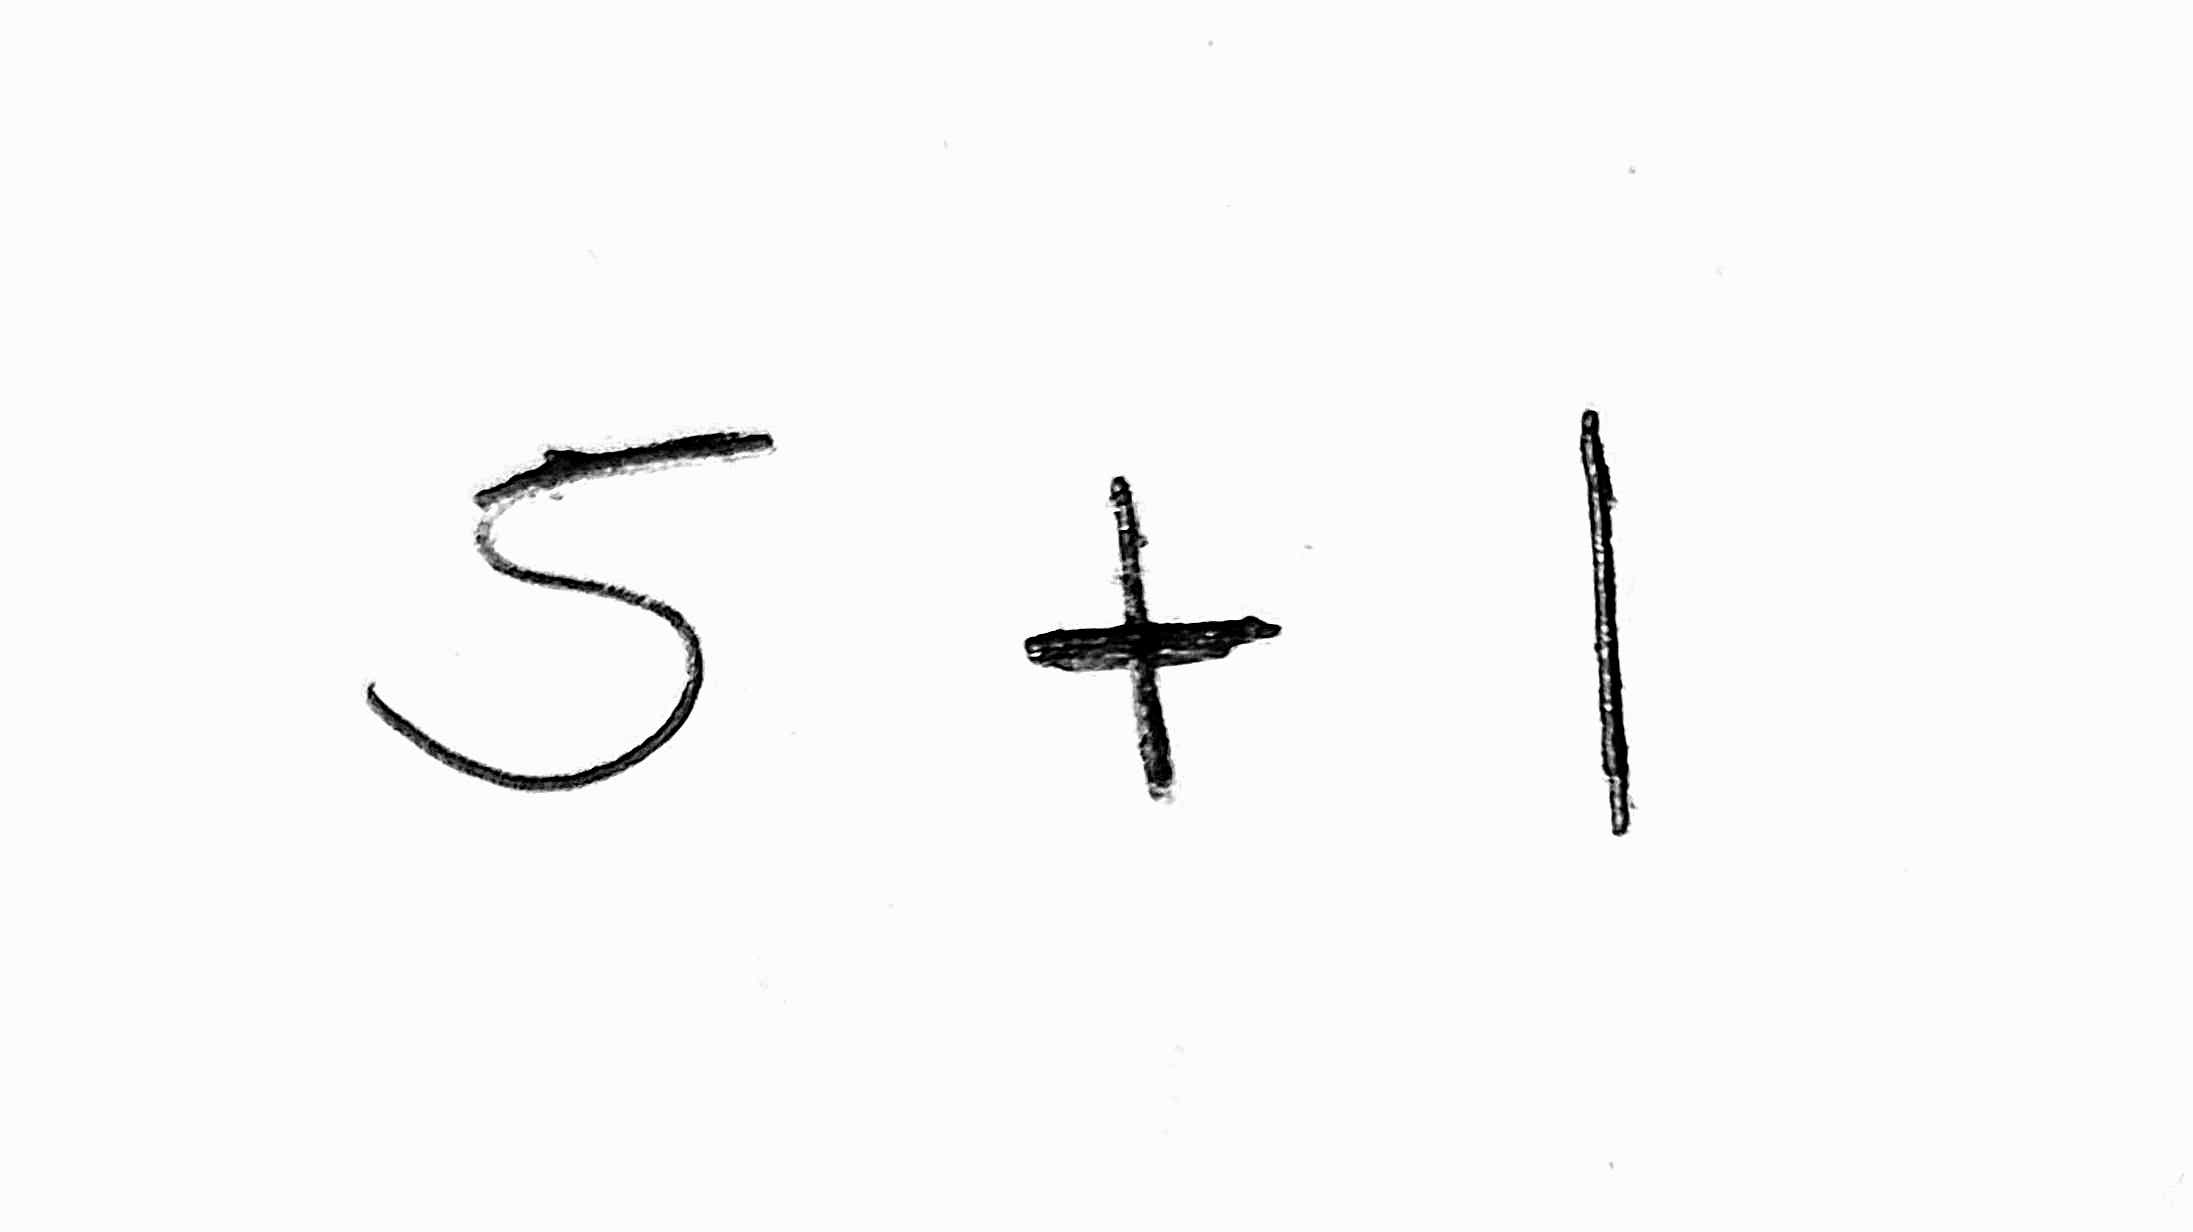 5 + 1